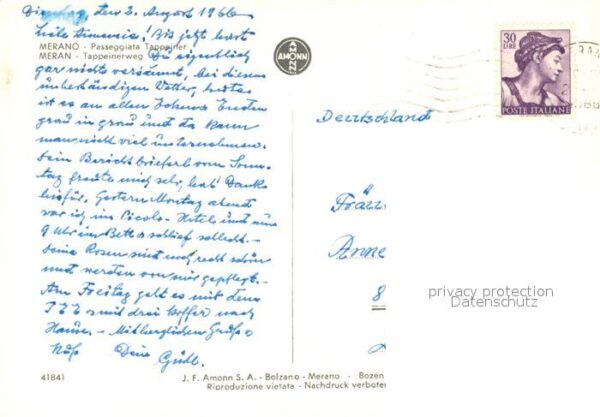 Dienstag, den 2. August 1966
Liebe ! Bis jetzt hast
MERANO - Passeggiata Tappeiner
MERAN - Tappeinerweg Du eigentlich
gar nichts versäumt, bei diesem
unbeständigen Wetter, heute
ist es an allen Ecken u. Enden
grau in grau und da kann
man nicht viel unternehmen.
Dein Bericht brieferl vom Sonn-
tag freute mich sehr, hab' Dank
hiefür. Gestern Montag abend
war ich im Picolo-Hotel und um
9 Uhr im Bett u. schlief schlecht. -
Deine Rosen sind noch recht schön
und werden von mir gepflegt. -
Am Freitag geht es mit dem
mit drei Koffer nach
Hause. - Mit herzlichen Grüßen
Deine Gudl.
41841
J. F. Amonn S. A. - Bolzano - Merano - Bozen
Riproduzione vietata - Nachdruck verboten
AMONN
30
LIRE
POSTE ITALIANE
Deutschland
Anne
8
privacy protection
Datenschutz